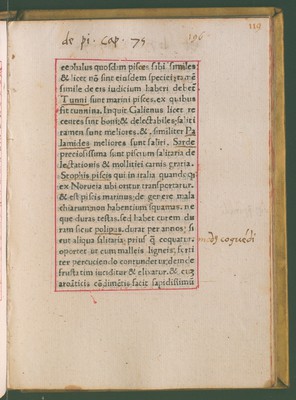 119
196
de pi. cap. 75
cephalus quosdam pisces sibi similes
& licet nõ sint eiusdem speciei: tamẽ
simile de eis iudicium haberi debet
Tunni sunt marini pisces, ex quibus
fit tunnina. Inquit Galienus licet re
centes sint boni: & delectabiles: saliti
tamen sunt meliores. &. similiter Pa
lamides meliores sunt saliti. Sarde
preciosissima sunt piscium salitaria de
lectationis & mollitiei carnis gratia.
Stophis piscis qui in italia quandoq;
ex Norueia ubi oritur transportatur.
& est piscis marinus: de genere mala
chiarum non habentium squamas. ne
que duras testas. sed habet corium du
rum sicut polipus. durat per annos: si
cut aliqua salitaria: prius q̃ coquatur.
oportet ut cum malleis ligneis: forti
ter percuciendo contundetur: deinde
frustatim inciditur & elixatur. &. cuz
aromaticis cõdimẽtis facit sapidissimũ
mod9 coquẽdi